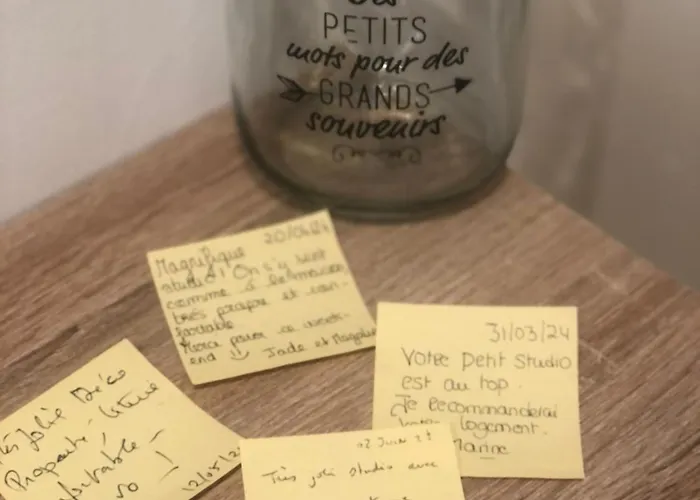 PETITS
mots pour des
GRANDS
souvenirs
20/04/24
Magnifique
studio ! On s'y sent
comme à la maison
très propre et con-
fortable
Merci pour ce week-
end Jade et
31/03/24
Votre petit studio
est au top.
Je recommanderai
logement.
Marine
Jolie Déco
Propreté - literie
!
12/05/2
02 Juin 24
Très joli studio avec